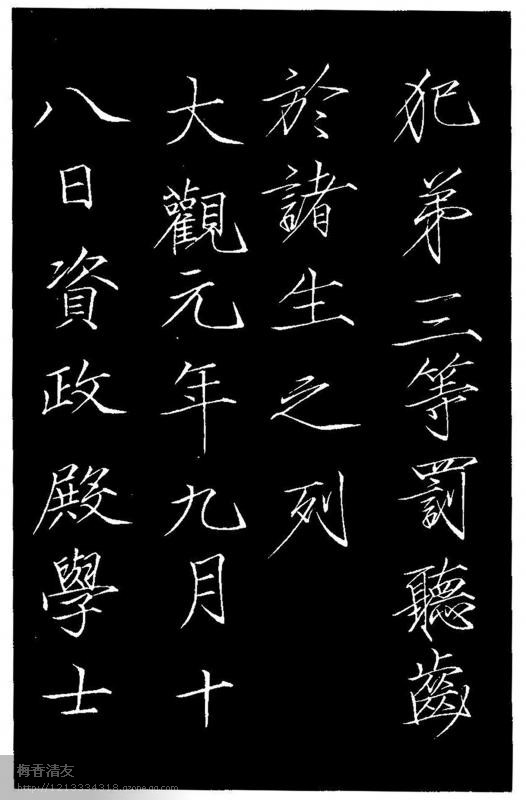 犯弟三等罰聽齒
於諸生之列
大觀元年九月十
八日資政殿學士
梅香清友
http://1213334318.qzone.qq.com